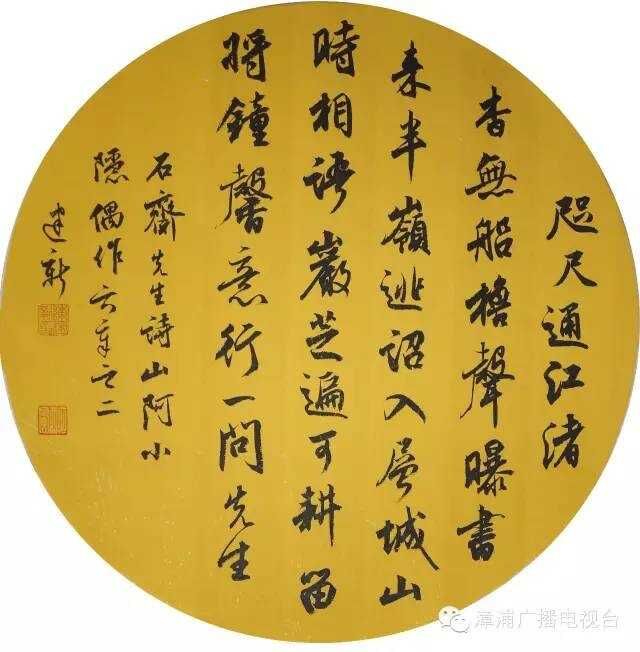 咫尺通江渚
杳無船櫓聲曝書
來半嶺逃詔入層城山
時相語巖芝遍可耕留
將鐘馨意行一問先生
石齋先生詩山阿小
隱偶作六章之二
建新
漳浦广播电视台